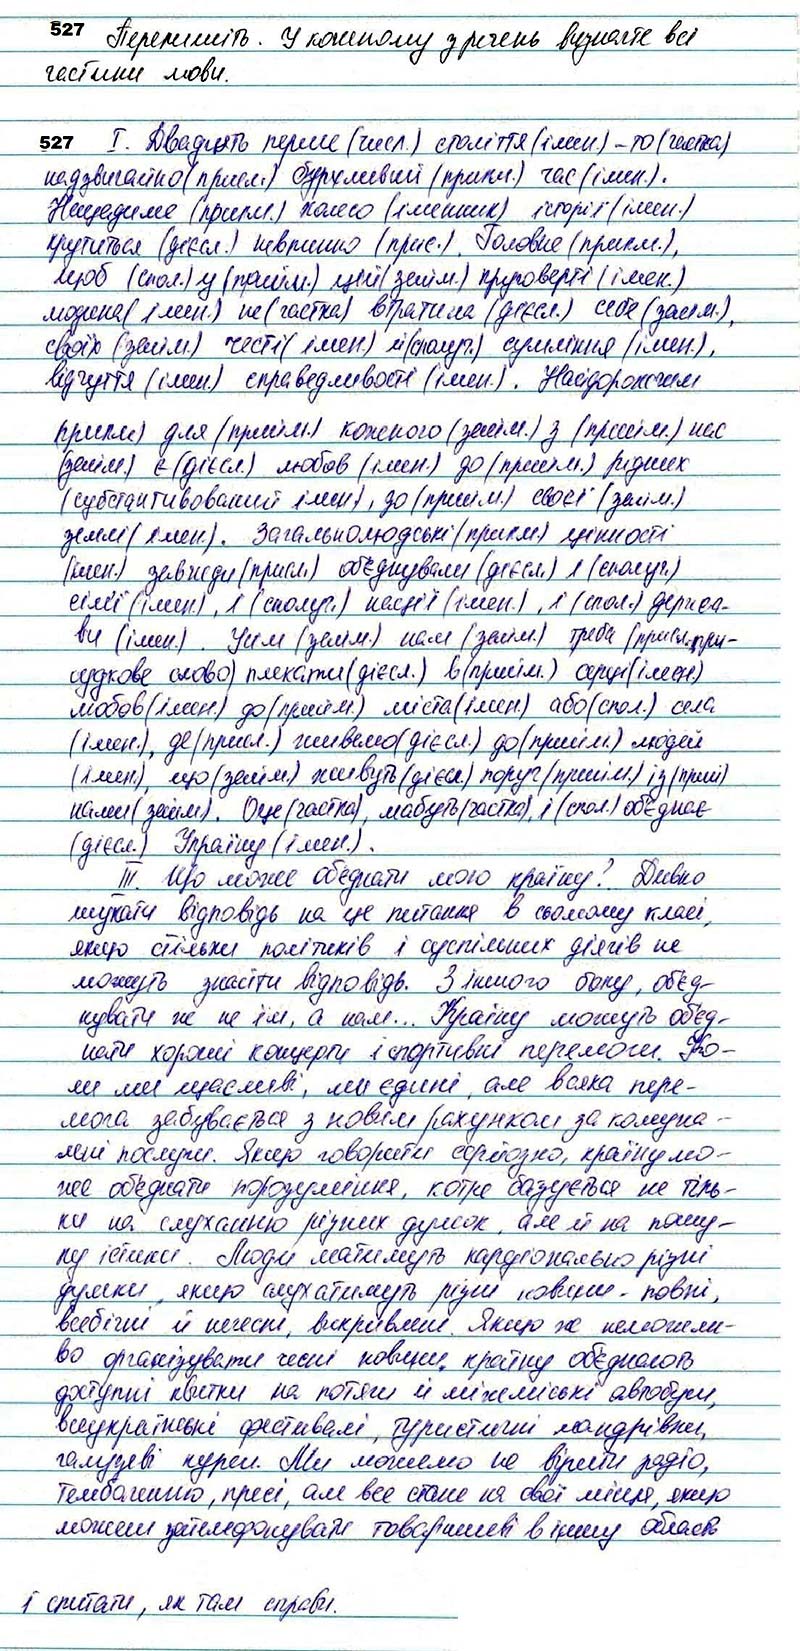 527 Перепишіть. У кожному з речень визначте всі
частини мови.
527 І. Двадцять перше (числ.) століття (імен.) – то (частка)
надзвичайно (присл.) бурхливий (прикм.) час (імен.).
Нещадиме (прикм.) колесо (іменник) історії (імен.)
крутиться (дієсл.) невпинно (прис.). Головне (прикм.),
щоб (спол.) у (прийм.) цій (займ.) круговерті (імен.)
людина (імен.) не (частка) втратила (дієсл.) себе (займ.),
своїх (займ.) честі (імен.) й (сполуч.) сумління (імен.),
відчуття (імен.) справедливості (імен.). Найдорожчим
прикм) для (прийм.) кожного (займ.) з (прийм.) нас
(займ.) є (дієсл.) любов (імен.) до (прийм.) рідних
(субстантивований імен), до (прийм.) своєї (займ.)
землі (імен.). Загальнолюдські (прикм.) цінності
(імен.) завжди (присл.) об'єднували (дієсл.) і (сполуч.)
сім'ї (імен.), і (сполуч.) нації (імен.), і (спол.) держа-
ви (імен.). Усім (займ.) нам (займ.) треба (присл. при-
судкове слово) плекати (дієсл.) в (прийм.) серці (імен)
любов (імен.) до (прийм.) міста (імен) або (спол.) села
(імен.), де (присл.) живемо (дієсл.) до (прийм.) людей
(імен.), що (займ.) живуть (дієсл) поруч (прийм.) із (прий)
нами (займ). Оце (частка), мабуть (частка), і (спол.) об'єднає
(дієсл.) Україну (імен.).
ІІІ. Що може об'єднати мою країну? Дивно
шукати відповідь на це питання в сьомому класі,
якщо стільки політиків і суспільних діячів не
можуть знайти відповідь. З іншого боку, об'єд-
нувати ж не їм, а нам... Країну можуть об'єд-
нати хороші концерти і спортивні перемоги. Ко-
ли ми щасливі, ми єдині, але всяка пере-
мога забувається з новим рахунком за комуна-
льні послуги. Якщо говорити серйозно, країну мо-
же об'єднати порозуміння, котре базується не тіль-
ки на слуханню різних думок, але й на пошу-
ку істини. Люди матимуть кардіонально різні
думки, якщо слухатимуть різні новини - повні,
всебічні й нечесні, викривлені. Якщо ж неможли-
во організувати чесні новини, країну об'єднають
доступні квитки на потяги й міжміські автобуси,
всеукраїнські фестивалі, туристичні мандрівки,
галузеві курси. Ми можемо не вірити радіо,
телебаченню, пресі, але все стане на свої місця, якщо
можеш зателефонувати товаришеві в іншу область
і спитати, як там справи.